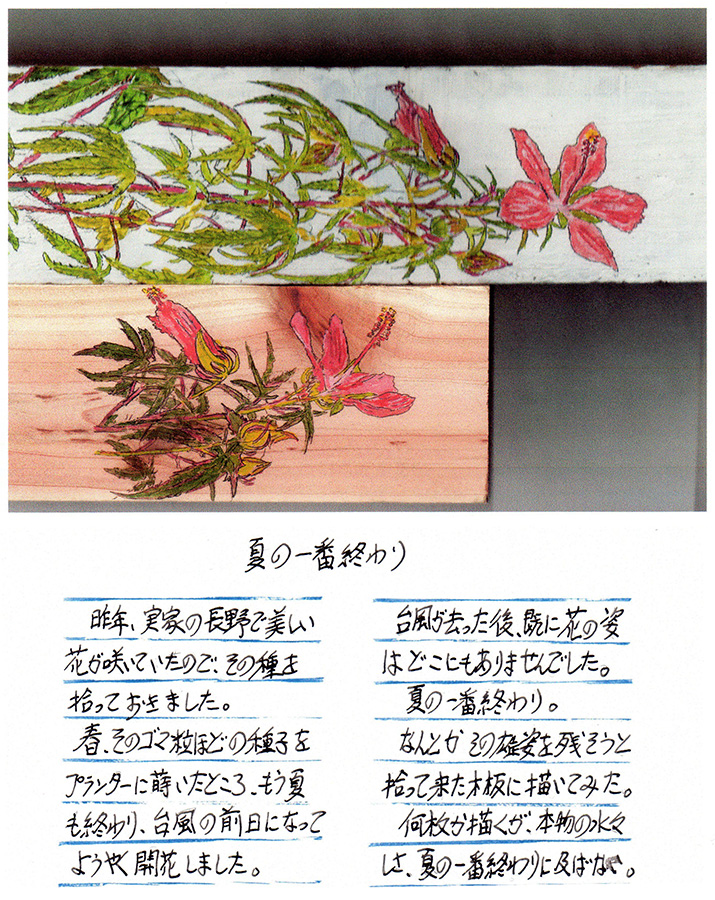 夏の一番終わり
昨年、実家の長野で美しい
花が咲いていたので、その種を
拾っておきました。
春、そのゴマ粒ほどの種子を
プランターに蒔いたところ、もう夏
も終わり、台風の前日になって
ようやく開花しました。
台風が去った後、既に花の姿
はどこにもありませんでした。
夏の一番終わり。
なんとかその雄姿を残そうと
拾って来た木板に描いてみた。
何枚か描くが、本物の水々
しさ、夏の一番終わりに及ばない。